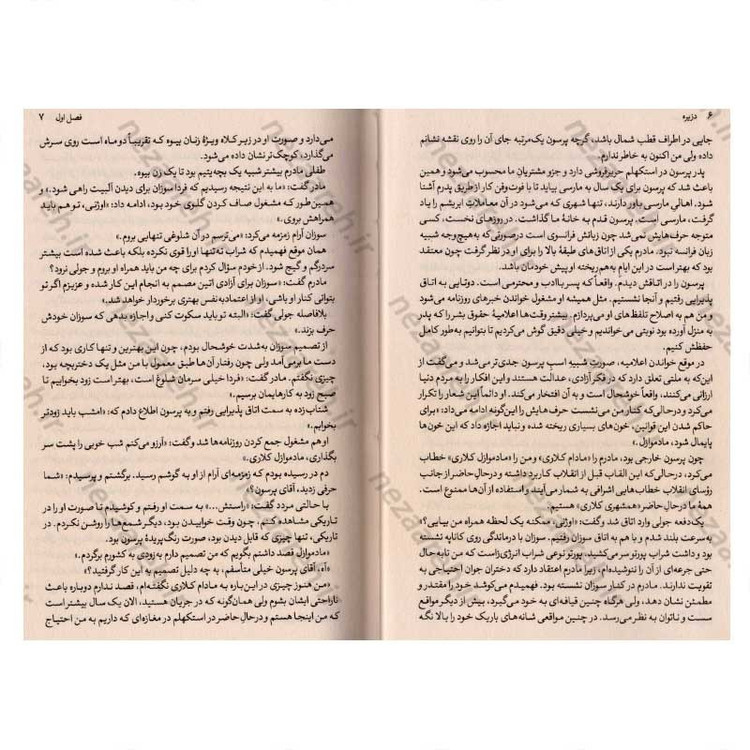 ۶ دزیره
جایی در اطراف قطب شمال باشد، گرچه پرسون یک‌مرتبه جای آن را روی نقشه نشانم
داده ولی من اکنون به خاطر ندارم.
پدر پرسون در استکهلم حریرفروشی دارد و جزو مشتریان ما محسوب می‌شود و همین
باعث شد که پرسون برای یک سال به مارسی بیاید تا با فوت‌وفن کار از طریق پدرم آشنا
شود، اهالی مارسی باور دارند، تنها شهری که می‌شود در آن معاملات ابریشم را یاد
گرفت، مارسی است. پرسون قدم به خانهٔ ما گذاشت. در روزهای نخست، کسی
متوجه حرف‌هایش نمی‌شد چون زبانش فرانسوی است درصورتی‌که به‌هیچ‌وجه شبیه
زبان فرانسه نبود. مادرم یکی از اتاق‌های طبقهٔ بالا را برای او در نظر گرفت چون معتقد
بود که بهتر است در این ایام به‌هم‌ریخته او پیش خودمان باشد.
پرسون را در اتاقش دیدم. واقعاً که پسر باادب و محترمی است. دوتایی به اتاق
پذیرایی رفتیم و آنجا نشستیم. مثل همیشه او مشغول خواندن خبرهای روزنامه می‌شود
و من هم به اصلاح تلفظ‌های او می‌پردازم. بیشتر وقت‌ها اعلامیهٔ حقوق بشر را که پدر
به منزل آورده بود نوبتی می‌خواندیم و خیلی دقیق گوش می‌کردیم تا بتوانیم به‌طور کامل
حفظش کنیم.
در موقع خواندن اعلامیه، صورت شبیهِ اسبِ پرسون جدی‌تر می‌شد و می‌گفت از
این‌که به ملتی تعلق دارد که در فکر آزادی، عدالت هستند و این افکار را به مردم دنیا
ارزانی می‌کنند، واقعاً خوشحال است و به آن افتخار می‌کند. او دائماً این شعار را تکرار
می‌کرد و درحالی‌که کنار من می‌نشست حرف‌هایش را این‌گونه ادامه می‌داد: «برای
حاکم شدن این قوانین، خون‌های بسیاری ریخته شده و نباید اجازه داد که این خون‌ها
پایمال شود، مادموازل.»
چون پرسون خارجی بود، مادرم را «مادام کلاری» و من را «مادموازل کلاری» خطاب
می‌کرد، درحالی‌که این القاب قبل از انقلاب کاربرد داشته و درحال‌حاضر از جانب
رؤسای انقلاب خطاب‌هایی اشرافی به شمار می‌آیند و استفاده از آن‌ها ممنوع است.
همهٔ ما درحال‌حاضر «همشهری کلاری» هستیم.
یک‌دفعه جولی وارد اتاق شد و گفت: «اوژنی، ممکنه یک لحظه همراه من بیایی؟»
به‌سرعت بلند شدم و با هم به اتاق سوزان رفتیم. سوزان با درماندگی روی کاناپه نشسته
بود و داشت شراب پورتو سر می‌کشید. پورتو نوعی شراب انرژی‌زاست که من تابه‌حال
حتی جرعه‌ای از آن را ننوشیده‌ام، زیرا مادرم اعتقاد دارد که دختران جوان احتیاجی به
تقویت ندارند. مادرم در کنار سوزان نشسته بود. فهمیدم می‌کوشد خود را مقتدر و
مطمئن نشان دهد، ولی هرگاه چنین قیافه‌ای به خود می‌گیرد، بیش از دیگر مواقع
سست و ناتوان به نظر می‌رسد. در چنین مواقعی شانه‌های باریک خود را بالا نگه
فصل اول ۷
می‌دارد و صورت او در زیر کلاه ویژهٔ زنان بیوه که تقریباً دو ماه است روی سرش
می‌گذارد، کوچک‌تر نشان داده می‌شود.
طفلی مادرم بیشتر شبیه یک بچه‌یتیم بود تا یک زن بیوه.
مادر گفت: «ما به این نتیجه رسیدیم که فردا سوزان برای دیدن آلبیت راهی شود.» و
همین‌طور که مشغول صاف کردن گلوی خود بود، ادامه داد: «اوژنی، تو هم باید
همراهش بروی.»
سوزان آرام زمزمه می‌کرد: «می‌ترسم در آن شلوغی تنهایی بروم.»
همان موقع فهمیدم که شراب نه‌تنها او را قوی نکرده بلکه باعث شده است بیشتر
سردرگم و گیج شود. از خودم سؤال کردم برای چه من باید همراه او بروم و جولی نرود؟
مادر گفت: «سوزان برای آزادی اتین مصمم به انجام این کار شده و عزیزم اگر تو
بتوانی کنار او باشی، او از اعتمادبه‌نفس بهتری برخوردار خواهد شد.»
بلافاصله جولی گفت: «البته تو باید سکوت کنی و اجازه بدهی که سوزان خودش
حرف بزند.»
از تصمیم سوزان به‌شدت خوشحال بودم، چون این بهترین و تنها کاری بود که از
دست ما برمی‌آمد ولی چون رفتار آن‌ها طبق معمول با من مثل یک دختربچه بود،
چیزی نگفتم. مادر گفت: «فردا خیلی سرمان شلوغ است، بهتر است زود بخوابیم تا
صبح زود به کارهایمان برسیم.»
شتاب‌زده به سمت اتاق پذیرایی رفتم و به پرسون اطلاع دادم که: «امشب باید زودتر
بخوابم.»
او هم مشغول جمع کردن روزنامه‌ها شد و گفت: «آرزو می‌کنم شب خوبی را پشت سر
بگذاری، مادموازل کلاری.»
دم در رسیده بودم که زمزمه‌ای آرام از او به گوشم رسید. برگشتم و پرسیدم: «شما
حرفی زدید، آقای پرسون؟»
با حالتی مردد گفت: «راستش...» به سمت او رفتم و کوشیدم تا صورت او را در
تاریکی مشاهده کنم، چون وقت خوابیدن بود، دیگر شمع‌ها را روشن نکردم. در
تاریکی، تنها چیزی که قابل دیدن بود، صورت رنگ‌پریدهٔ پرسون بود.
«مادموازل قصد داشتم بگویم که من تصمیم دارم به‌زودی به کشورم برگردم.»
«آه، آقای پرسون خیلی متأسفم، به چه دلیل تصمیم به این کار گرفتید؟»
«من هنوز چیزی در این‌باره به مادام کلاری نگفته‌ام، قصد ندارم دوباره باعث
ناراحتی ایشان بشوم ولی همان‌گونه که در جریان هستید، الان یک سال بیشتر است
که من اینجا هستم و درحال‌حاضر در استکهلم در مغازه‌ای که داریم به من احتیاج
nezabteh.ir